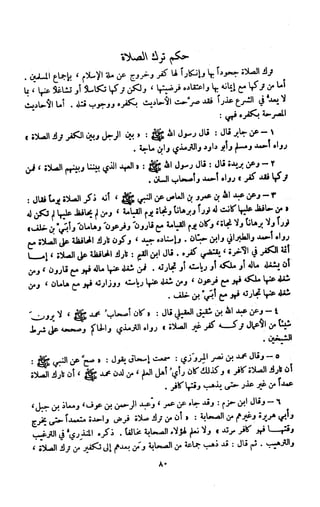 حكم ترك الصلاة
ترك الصلاة جحوداً بها وإنكاراً لها كفر وخروج عن ملة الإسلام ، بإجماع المسلمين .
أما من تركها مع إيمانه بها واعتقاده فرضيتها ، ولكن تركها تكاسلاً أو تشاغلاً عنها ، بما
لا يعد في الشرع عذراً فقد صرحت الأحاديث بكفره ووجوب قتله . أما الأحاديث
المصرحة بكفره فهي :
١ - عن جابر قال : قال رسول الله ﷺ : « بين الرجل وبين الكفر ترك الصلاة »
رواه أحمد ومسلم وأبو داود والترمذي وابن ماجة .
٢ - وعن بريدة قال : قال رسول الله ﷺ : « العهد الذي بيننا وبينهم الصلاة ، فمن
تركها فقد كفر » رواه أحمد وأصحاب السنن .
٣ - وعن عبد الله بن عمرو بن العاص عن النبي ﷺ ، أنه ذكر الصلاة يوماً فقال :
« من حافظ عليها كانت له نوراً وبرهاناً ونجاة يوم القيامة ، ومن لم يحافظ عليها لم تكن له
نوراً ولا برهاناً ولا نجاة ، وكان يوم القيامة مع قارون وفرعون وهامان وأبي بن خلف »
رواه أحمد والطبراني وابن حبان . وإسناده جيد ، وكون تارك المحافظة على الصلاة مع
أئمة الكفر في الآخرة ، يقتضي كفره . قال ابن القيم : تارك المحافظة على الصلاة ، إما
أن يشغله ماله أو ملكه أو رياسته أو تجارته . فمن شغله عنها ماله فهو مع قارون ، ومن
شغله عنها ملكه فهو مع فرعون ، ومن شغله عنها رياسته ووزارته فهو مع هامان ، ومن
شغله عنها تجارته فهو مع أبي بن خلف .
٤ - وعن عبد الله بن شقيق العقيلي قال : « كان أصحاب محمد ﷺ ، لا يرون
شيئاً من الأعمال تركه كفر غير الصلاة » رواه الترمذي والحاكم وصححه على شرط
الشيخين .
٥ - وقال محمد بن نصر المروزي : سمعت إسحاق يقول : « صح عن النبي ﷺ :
أن تارك الصلاة كافر » وكذلك كان رأي أهل العلم ، من لدن محمد ﷺ ، أن تارك الصلاة
عمداً من غير عذر حتى يذهب وقتها كافر .
٦ - وقال ابن حزم : وقد جاء عن عمر ، وعبد الرحمن بن عوف ، ومعاذ بن جبل ،
وأبي هريرة وغيرهم من الصحابة : « أن من ترك صلاة فرض واحدة متعمداً حتى يخرج
وقتها فهو كافر مرتد » ولا نعلم لهؤلاء الصحابة مخالفاً . ذكره المنذري في الترغيب
والترهيب . ثم قال : قد ذهب جماعة من الصحابة ومن بعدهم إلى تكفير من ترك الصلاة ،
٨٠